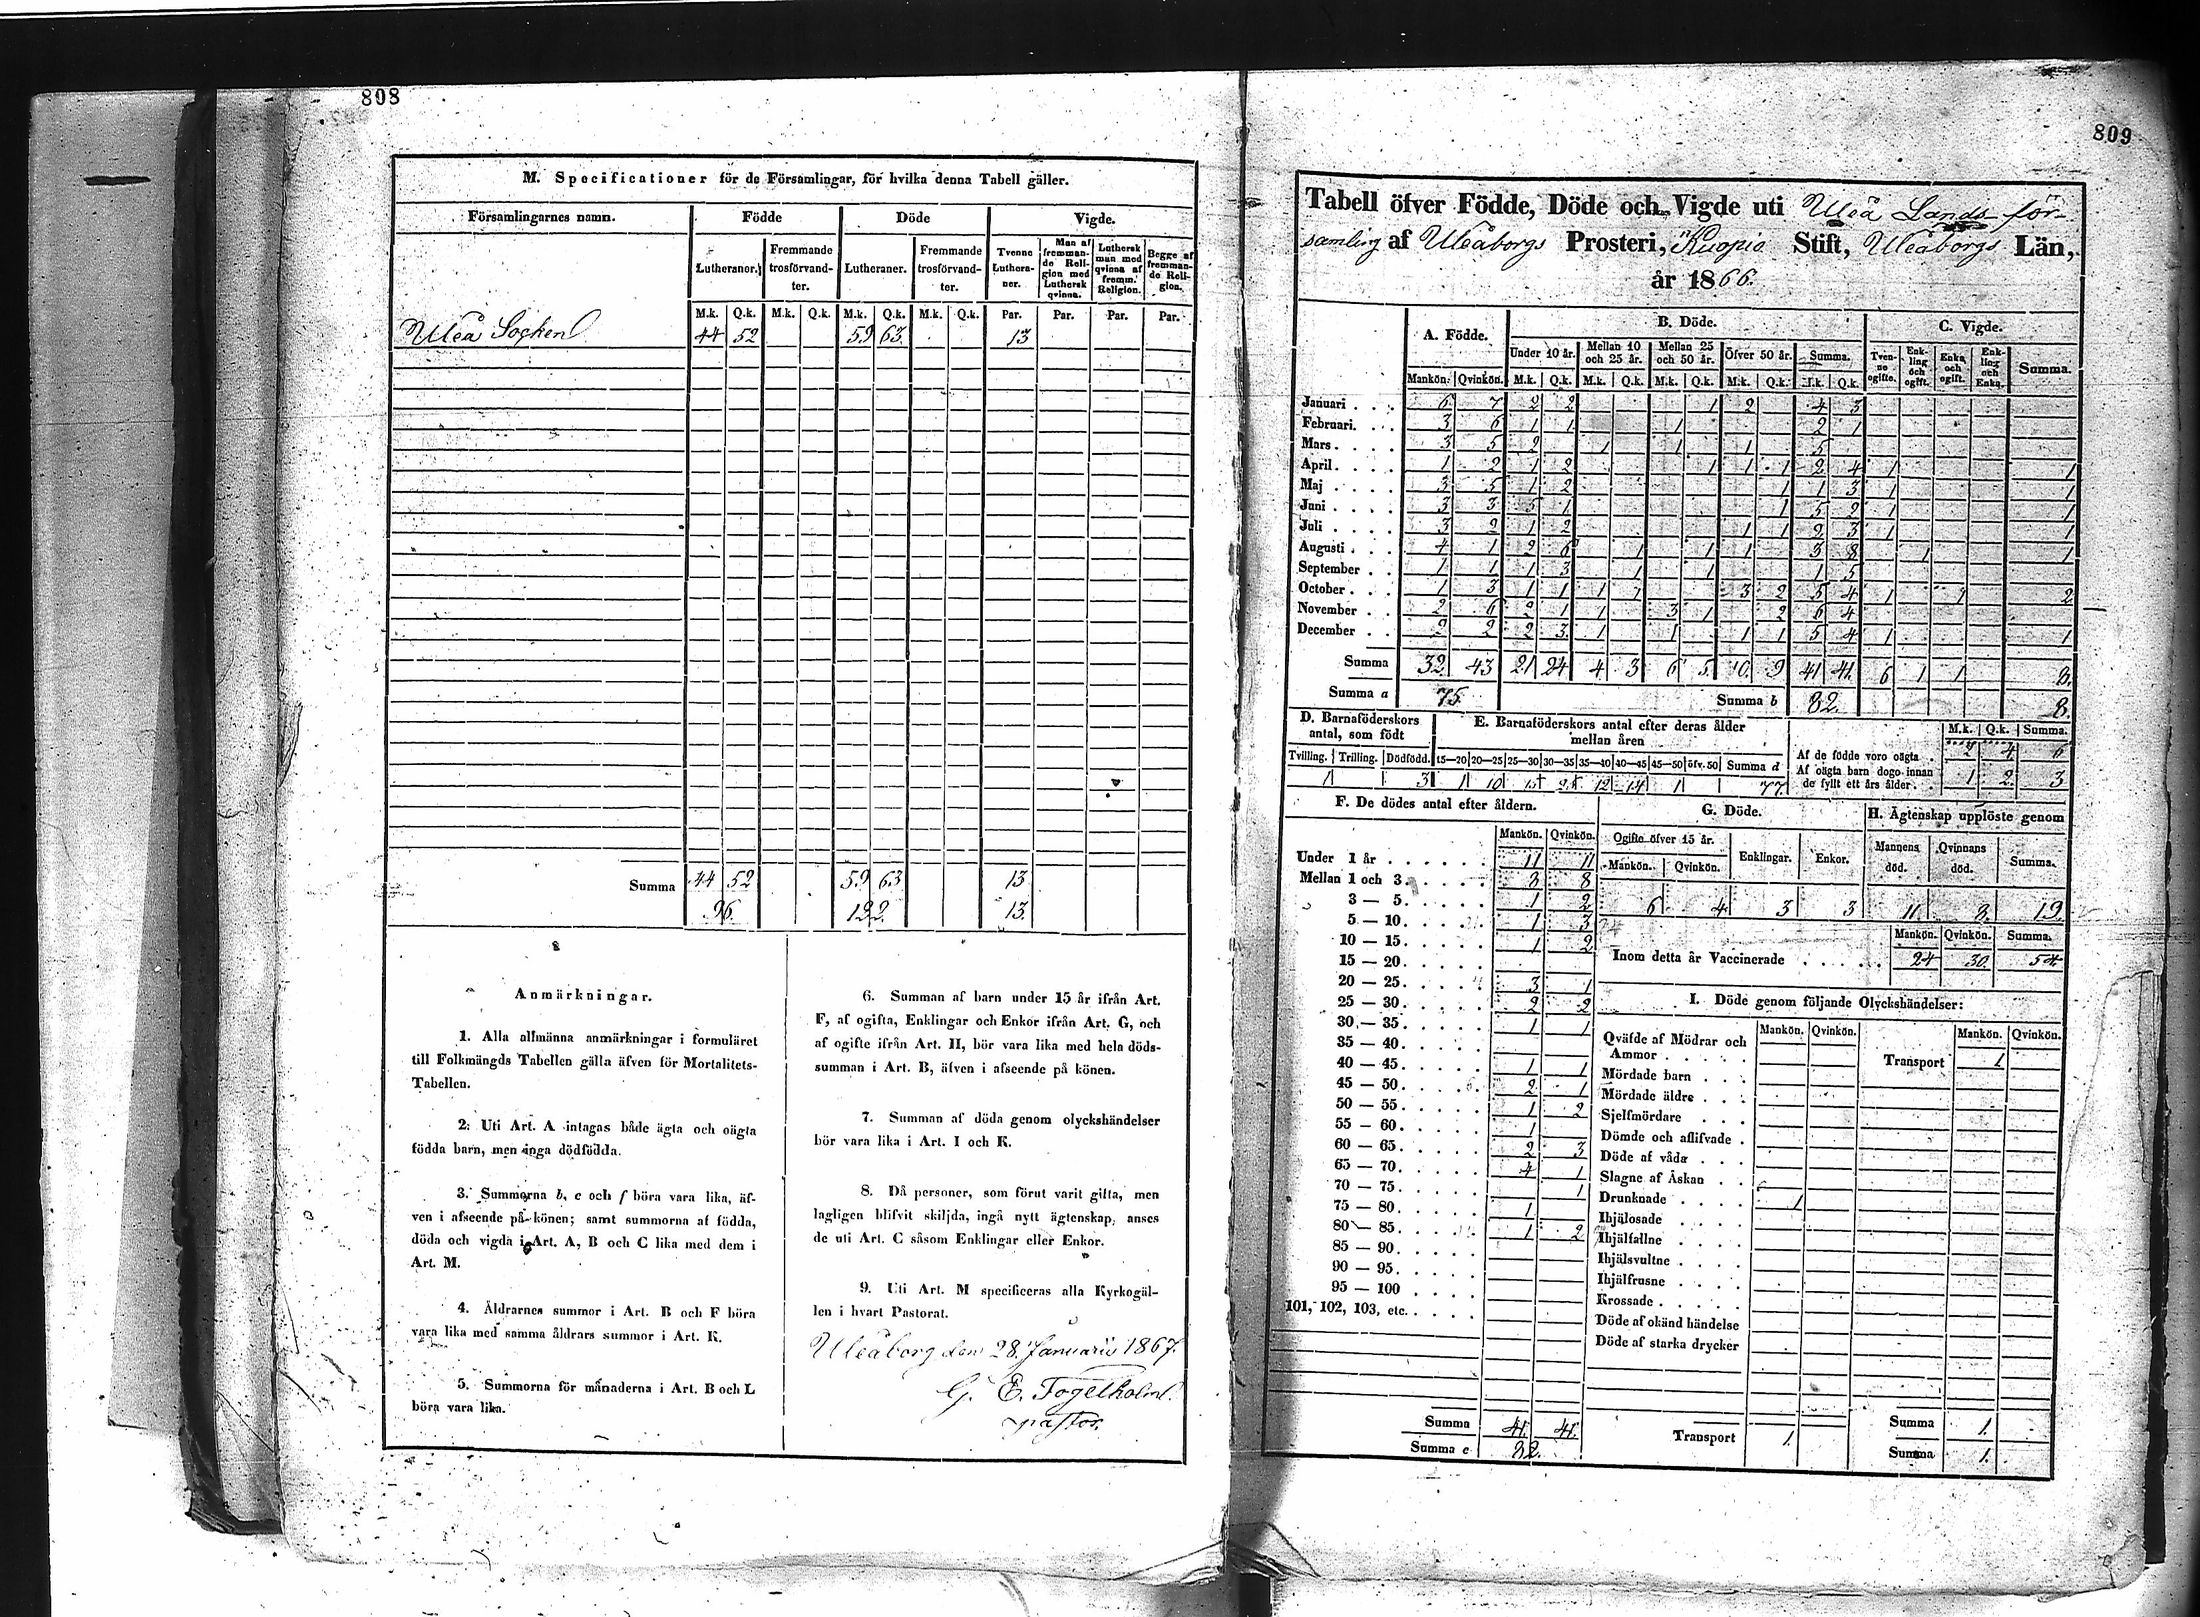 808
M. Specificationer för de Församlingar, för hvilka denna Tabell gäller.
Församlingarnes namn. Födde Döde Vigde.
Lutheraner. Fremmande trosförvandter. Lutheraner. Fremmande trosförvandter. Tvenne Lutheraner. Man af fremmande Religion med Luthersk qvinna. Luthersk man med qvinna af fremm. Religion. Begge af fremmande Religion.
M.k. Q.k. M.k. Q.k. M.k. Q.k. M.k. Q.k. Par. Par. Par. Par.
Uleå Socken 44 52 59 63 13
Summa 44 52 59 63 13
96. 122. 13.
Anmärkningar.
1. Alla allmänna anmärkningar i formuläret
till Folkmängds Tabellen gälla äfven för Mortalitets-
Tabellen.
2. Uti Art. A intagas både ägta och oägta
födda barn, men inga dödfödda.
3. Summorna b, c och f böra vara lika, äf-
ven i afseende på könen; samt summorna af födda,
döda och vigda i Art. A, B och C lika med dem i
Art. M.
4. Åldrarnes summor i Art. B och F böra
vara lika med samma åldrars summor i Art. K.
5. Summorna för månaderna i Art. B och L
böra vara lika.
6. Summan af barn under 15 år ifrån Art.
F, af ogifta, Enklingar och Enkor ifrån Art. G, och
af ogifte ifrån Art. H, bör vara lika med hela döds-
summan i Art. B, äfven i afseende på könen.
7. Summan af döda genom olyckshändelser
bör vara lika i Art. I och K.
8. Då personer, som förut varit gifta, men
lagligen blifvit skiljda, ingå nytt ägtenskap, anses
de uti Art. C såsom Enklingar eller Enkor.
9. Uti Art. M specificeras alla Kyrkogäl-
len i hvart Pastorat.
Uleåborg den 28 Januarii 1867.
G. E. Fogelholm.
pastor.
809
Tabell öfver Födde, Döde och Vigde uti Uleå Lands för-
samling af Uleåborgs Prosteri, Kuopio Stift, Uleåborgs Län,
år 1866.
A. Födde. B. Döde. C. Vigde.
Under 10 år. Mellan 10 och 25 år. Mellan 25 och 50 år. Öfver 50 år. Summa. Tvenne ogifte. Enkling och ogift. Enka och ogift. Enkling och Enka. Summa.
Mankön. Qvinkön. M.k. Q.k. M.k. Q.k. M.k. Q.k. M.k. Q.k. M.k. Q.k.
Januari 6 7 2 2 1 2 4 3
Februari. 3 6 1 1 1 2 1
Mars 3 5 2 1 1 1 5
April. 1 2 1 2 1 1 1 2 4 1 1
Maj 3 5 1 2 1 1 3 1 1
Juni 3 3 5 1 1 5 2 1 1
Juli 3 2 1 2 1 1 2 3 1 1
Augusti 4 1 2 6 1 1 1 3 8 1 1
September 1 1 1 3 1 1 1 5
October 1 3 1 1 1 1 3 2 5 4 1 1 2
November 2 6 2 1 1 3 1 2 6 4
December 2 2 2 3 1 1 1 1 5 4 1 1
Summa 32 43 21 24 4 3 6 5 10 9 41 41 6 1 1 8.
Summa a 75. Summa b 82. 8.
D. Barnaföderskors antal, som födt
E. Barnaföderskors antal efter deras ålder mellan åren
Tvilling. Trilling. Dödfödd. 15—20 20—25 25—30 30—35 35—40 40—45 45—50 öfv. 50 Summa d
1 3 1 10 12 14 1 77.
M.k. Q.k. Summa.
Af de födde voro oägta 2 4 6
Af oägta barn dogo innan
de fyllt ett års ålder 1 2 3
F. De dödes antal efter åldern.
Mankön. Qvinkön.
Under 1 år 11 11
Mellan 1 och 3 8 8
3 — 5 1 2
5 — 10 1 3
10 — 15 1 2
15 — 20
20 — 25 3 1
25 — 30 2 2
30 — 35 1 1
35 — 40
40 — 45 1 1
45 — 50 2 1
50 — 55 1 2
55 — 60 1
60 — 65 2 3
65 — 70 4 1
70 — 75 1
75 — 80 1
80 — 85 1 2
85 — 90
90 — 95
95 — 100
101, 102, 103, etc.
Summa 41. 41.
Summa c 82.
G. Döde.
Ogifte öfver 15 år. Enklingar. Enkor.
Mankön. Qvinkön.
6 4 3 3
H. Ägtenskap upplöste genom
Mannens död. Qvinnans död. Summa.
11 8. 19.
Mankön. Qvinkön. Summa.
Inom detta år Vaccinerade 24 30 54
I. Döde genom följande Olyckshändelser:
Mankön. Qvinkön. Mankön. Qvinkön.
Qväfde af Mödrar och
Ammor
Transport 1.
Mördade barn
Mördade äldre
Sjelfmördare
Dömde och aflifvade
Döde af våda
Slagne af Åskan
Drunknade 1
Ihjälosade
Ihjälfallne
Ihjälsvultne
Ihjälfrusne
Krossade
Döde af okänd händelse
Döde af starka drycker
Transport 1.
Summa 1.
Summa 1.